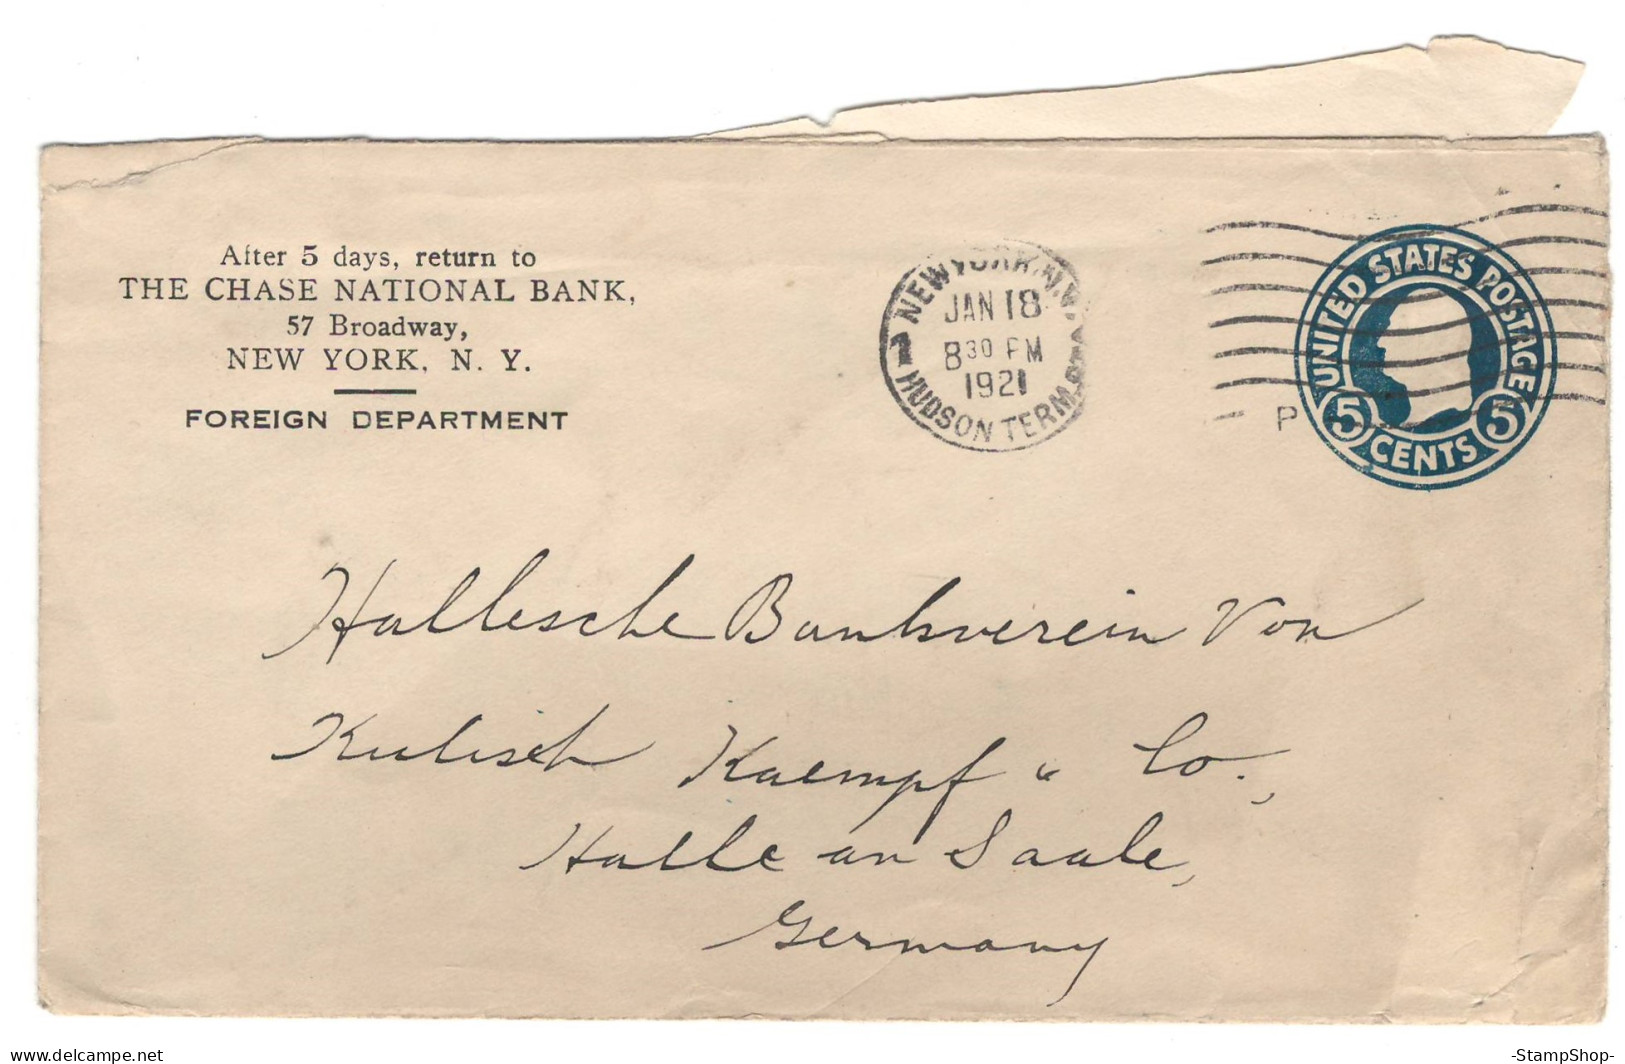 After 5 days, return to
THE CHASE NATIONAL BANK,
57 Broadway,
NEW YORK, N. Y.
FOREIGN DEPARTMENT
NEW YORK, N.Y.
JAN 18
8 30 PM
1921
HUDSON TERM. STA.
UNITED STATES POSTAGE
5 CENTS 5
P
Hallesche Bankverein Von
Kulisch Kaempf & Co.,
Halle an Saale,
Germany
delcampe.net
-StampShop-